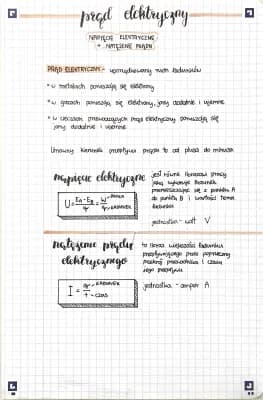 prąd elektryczny
NAPIĘCIE ELEKTRYCZNE
+ NATĘŻENIE PRĄDU
PRĄD ELEKTRYCZNY - uporządkowany ruch ładunków
* w metalach poruszają się elektrony
* w gazach poruszają się elektrony, jony dodatnie i ujemne
* w cieczach przewodzących prąd elektryczny poruszają się
jony dodatnie i ujemne
Umowny kierunek przepływu prądu to od plusa do minusa
napięcie elektryczne
U = EA-EB / q = W / q PRACA ŁADUNEK
jest równe ilorazowi pracy
jaką wykonuje ładunek
przemieszczając się z punktu A
do punktu B i wartości tego
ładunku
jednostka - wolt V
natężenie prądu
elektrycznego
I = q / t ŁADUNEK CZAS
to iloraz wielkości ładunku
przepływającego przez poprzeczny
przekrój przewodnika i czasu
jego przepływu
jednostka - amper A